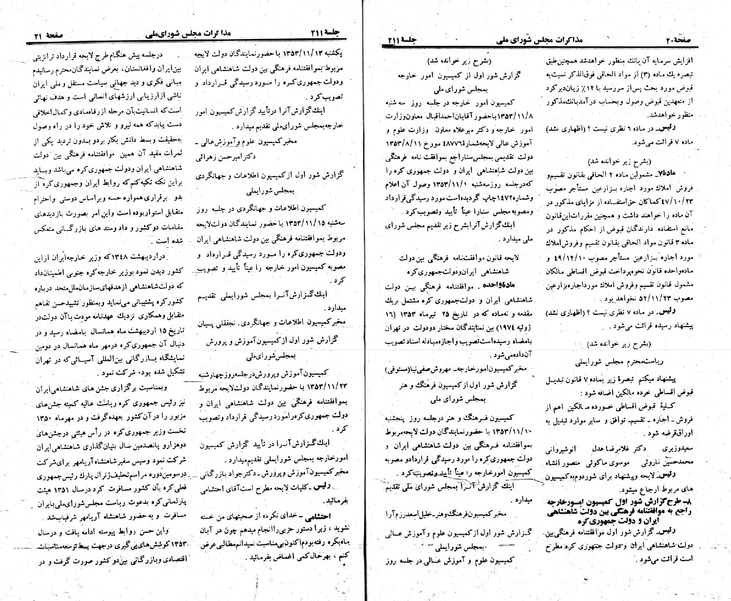 صفحه ۲۰
مذاکرات مجلس شورای ملی
جلسه ۲۱۱
افزایش سرمایه آن بانک منظور خواهد شد همچنین طبق
تبصره یک ماده (۳) از مواد الحاقی فوق‌الذکر نسبت به
قبوض مورد بحث پس از سررسید با ۱۲٪ زیان دیرکرد
از متعهدین قبوض وصول و بحساب درآمد بانک مذکور
منظور خواهد شد.
رئیس. در ماده ۶ نظری نیست ؟ (اظهاری نشد)
ماده ۷ قرائت می‌شود.
(بشرح زیر خوانده شد)
ماده۷. مشمولین ماده ۲ الحاقی بقانون تقسیم و
فروش املاک مورد اجاره بزارعین مستأجر مصوب
۴۷/۱۰/۲۳ کماکان حق استفاده از مزایای مذکور در
آن ماده را خواهند داشت و همچنین مقررات این قانون
مانع استفاده دارندگان قبوض از احکام مذکور در
ماده ۳ قانون مواد الحاقی بقانون تقسیم و فروش املاک
مورد اجاره بزارعین مستأجر مصوب ۴۹/۱۲/۱۰ و
ماده واحده قانون نحوه پرداخت قبوض اقساطی مالکان
مشمول قانون تقسیم و فروش املاک مورد اجاره بزارعین
مصوب ۵۲/۱۱/۲۳ نخواهد بود.
رئیس. در ماده ۷ نظری نیست ؟ (اظهاری نشد)
پیشنهاد رسیده قرائت می‌شود.
(بشرح زیر خوانده شد)
ریاست محترم مجلس شورایملی
پیشنهاد میکنم تبصره زیر بماده ۷ قانون تبدیل
قبوض اقساطی خرده مالکین اضافه شود :
کلیه قبوض اقساطی خورده مالکین اعم از
فروش ـ اجاره ـ تقسیم، توافق و سایر موارد تبدیل به
اوراق قرضه شود.
سعید وزیری دکتر غلامرضا عدل انوشیروانی
محمدحسین ناروئی موسوی ماکوئی منصور افشاه
رئیس. لایحه و پیشنهاد برای شور دوم به کمیسیون
های مربوط ارجاع میشود.
۸ـ طرح گزارش شور اول کمیسیون امور خارجه
راجع به موافقتنامه فرهنگی بین دولت شاهنشاهی
ایران و دولت جمهوری کره
رئیس. گزارش شور اول موافقتنامه فرهنگی بین
دولت شاهنشاهی ایران و دولت جمهوری کره مطرح
است قرائت می‌شود.
(بشرح زیر خوانده شد)
گزارش شور اول از کمیسیون امور خارجه
بمجلس شورای ملی
کمیسیون امور خارجه در جلسه روز سه شنبه
۱۳۵۳/۱۱/۸ با حضور آقایان احمد اقبال معاون وزارت
امور خارجه و دکتر میرعلاء معاون وزارت علوم و
آموزش عالی لایحه شماره ۴۸۷۷۶ مورخ ۱۳۵۳/۸/۱۱
دولت تقدیمی بمجلس سنا راجع بموافقت نامه فرهنگی
بین دولت شاهنشاهی ایران و دولت جمهوری کره را
که در جلسه روز سه شنبه ۱۳۵۳/۱۱/۱ وصول آن اعلام
و شماره ۱۴۷۲ چاپ گردیده است مورد رسیدگی قرارداد
و مصوبه مجلس سنا را عیناً تأیید و تصویب کرد.
اینک گزارش آنرا بشرح زیر تقدیم مجلس شورای
ملی میدارد.
لایحه قانون موافقتنامه فرهنگی بین دولت
شاهنشاهی ایران و دولت جمهوری کره
ماده واحده. موافقتنامه فرهنگی بین دولت
شاهنشاهی ایران و دولت جمهوری کره مشتمل بر یک
مقدمه و نه ماده که در تاریخ ۲۵ تیر ماه ۱۳۵۳ (۱۶
ژوئیه ۱۹۷۴) بین نمایندگان مختار دو دولت در تهران
بامضاء رسیده است تصویب و اجازه مبادله اسناد تصویب
آن داده می‌شود.
مخبر کمیسیون امور خارجه ـ مهروش صفی‌نیا (مستوفی)
گزارش شور اول از کمیسیون فرهنگ و هنر
بمجلس شورای ملی
کمیسیون فرهنگ و هنر در جلسه روز پنجشنبه
۱۳۵۳/۱۱/۱۰ با حضور نمایندگان دولت لایحه مربوط
بموافقتنامه فرهنگی بین دولت شاهنشاهی ایران و
دولت جمهوری کره را مورد رسیدگی قرارداد و مصوبه
کمیسیون امور خارجه را عیناً تأیید و تصویب کرد.
اینک گزارش آنرا به مجلس شورای ملی تقدیم
میدارد.
مخبر کمیسیون فرهنگ و هنر ـ خلیل اسعد رزم‌آرا
گزارش شور اول از کمیسیون علوم و آموزش عالی
بمجلس شورایملی
کمیسیون علوم و آموزش عالی در جلسه روز
جلسه ۲۱۱
مذاکرات مجلس شورای ملی
صفحه ۲۱
یکشنبه ۱۳۵۳/۱۱/۱۳ با حضور نمایندگان دولت لایحه
مربوط بموافقتنامه فرهنگی بین دولت شاهنشاهی ایران
و دولت جمهوری کره را مورد رسیدگی قرارداد و
تصویب کرد.
اینک گزارش آنرا در تأیید گزارش کمیسیون امور
خارجه بمجلس شورای ملی تقدیم میدارد.
مخبر کمیسیون علوم و آموزش عالی ـ
دکتر امیرحسن زهرائی
گزارش شور اول از کمیسیون اطلاعات و جهانگردی
بمجلس شورایملی
کمیسیون اطلاعات و جهانگردی در جلسه روز
سه‌شنبه ۱۳۵۳/۱۱/۱۵ با حضور نمایندگان دولت لایحه
مربوط بموافقتنامه فرهنگی بین دولت شاهنشاهی ایران
و دولت جمهوری کره را مورد رسیدگی قرارداد و
مصوبه کمیسیون امور خارجه را عیناً تأیید و تصویب
کرد.
اینک گزارش آنرا بمجلس شورای ملی تقدیم
میدارد.
مخبر کمیسیون اطلاعات و جهانگردی ـ نجفقلی پسیان
گزارش شور اول از کمیسیون آموزش و پرورش
بمجلس شورای‌ملی
کمیسیون آموزش و پرورش در جلسه روز چهارشنبه
۱۳۵۳/۱۱/۲۳ با حضور نمایندگان دولت لایحه مربوط
بموافقتنامه فرهنگی بین دولت شاهنشاهی ایران و
دولت جمهوری کره را مورد رسیدگی قرارداد و تصویب
کرد.
اینک گزارش آنرا در تأیید گزارش کمیسیون
امور خارجه بمجلس شورایملی تقدیم میدارد.
مخبر کمیسیون آموزش و پرورش ـ دکتر جواد بازرگانی
رئیس. کلیات لایحه مطرح است آقای احتشامی
بفرمائید.
احتشامی ـ خدای نکرده از صحبتهای من خسته
نشوید ، زیرا دستور حزبی را انجام میدهم چون در آبان
ماه بکره رفته بودم اکنون بی‌مناسبت نمیدانم مطالبی عرض
کنم ، بهر حال کمی اغماض بفرمائید.
در جلسه پیش هنگام طرح لایحه قرارداد ترانزیتی
بین ایران و افغانستان، بعرض نمایندگان محترم رسانیدم
مبانی فکری و دید جهانی سیاست مستقل و ملی ایران
ناشی از ارزیابی ارزشهای انسانی است و هدف نهائی
است که انسانیت آن مرحله از رفاه مادی و کمال اخلاقی
دست یابد که همه نیرو و تلاش خود را در راه وصول
بحقیقت و بسط دانش بکار برد و بدون تردید یکی از
ثمرات مفید آن همین موافقتنامه فرهنگی بین دولت
شاهنشاهی ایران و دولت جمهوری کره می‌باشد. باید
بر این نکته تکیه کنم که روابط ایران و جمهوری کره از
بدو برقراری همواره حسنه و براساس دوستی و احترام
متقابل استوار بوده است و این امر بصورت بازدیدهای
مقامات دو کشور و داد و ستدهای بازرگانی منعکس
شده است .
در اردیبهشت ۱۳۴۸ که وزیر خارجه ایران از این
کشور دیدن نمود بوزیر خارجه کره جنوبی اطمینان داد
که دولت شاهنشاهی از هدفهای سازمان ملل متحد درباره
کشور کره پشتیبانی می‌نماید و بمنظور تشیید حسن تفاهم
متقابل و همکاری نزدیک عهدنامه مودت با آن دولت در
تاریخ ۱۵ اردیبهشت ماه همانسال بامضاء رسید و در
دنبال آن جمهوری کره در مهر ماه همانسال در دومین
نمایشگاه بازرگانی بین‌المللی آسیائی که در تهران
تشکیل شده بود، شرکت نمود .
و بمناسبت برگزاری جشن های شاهنشاهی ایران
نیز رئیس جمهوری کره ریاست عالیه کمیته جشن‌های
مزبور را در آن کشور بعهده گرفت و در مهر ماه ۱۳۵۰
نخست وزیر جمهوری کره در رأس هیئتی در جشن‌های
دوهزار و پانصدمین سال بنیانگذاری شاهنشاهی ایران
شرکت نمود و سپس سفیر شاهنشاه آریامهر برای شرکت
در سومین دوره مراسم تحلیف ژنرال پارک رئیس جمهوری
فعلی کره بآن کشور مسافرت کرد در سال ۱۳۵۱ هیئت
پارلمانی کره بدعوت ریاست مجلس شورای ملی بایران
مسافرت و به حضور شاهنشاه آریامهر شرفیاب شد.
و این حسن روابط پیوسته ادامه یافت و در سال
۱۳۵۳ کوشش‌های پی‌گیری در جهت بسط و توسعه مناسبات
اقتصادی و بازرگانی بین دو کشور صورت گرفت و در